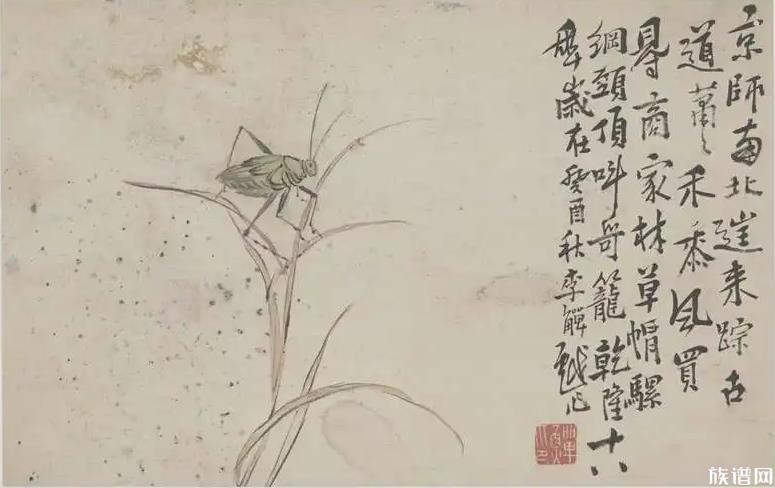 京師南北遞來踪古
道蕭〻禾黍風買
得商家林草帽騾
綱頸頂叫哥籠乾隆十八
年歲在癸酉秋李觶戲作
族谱网